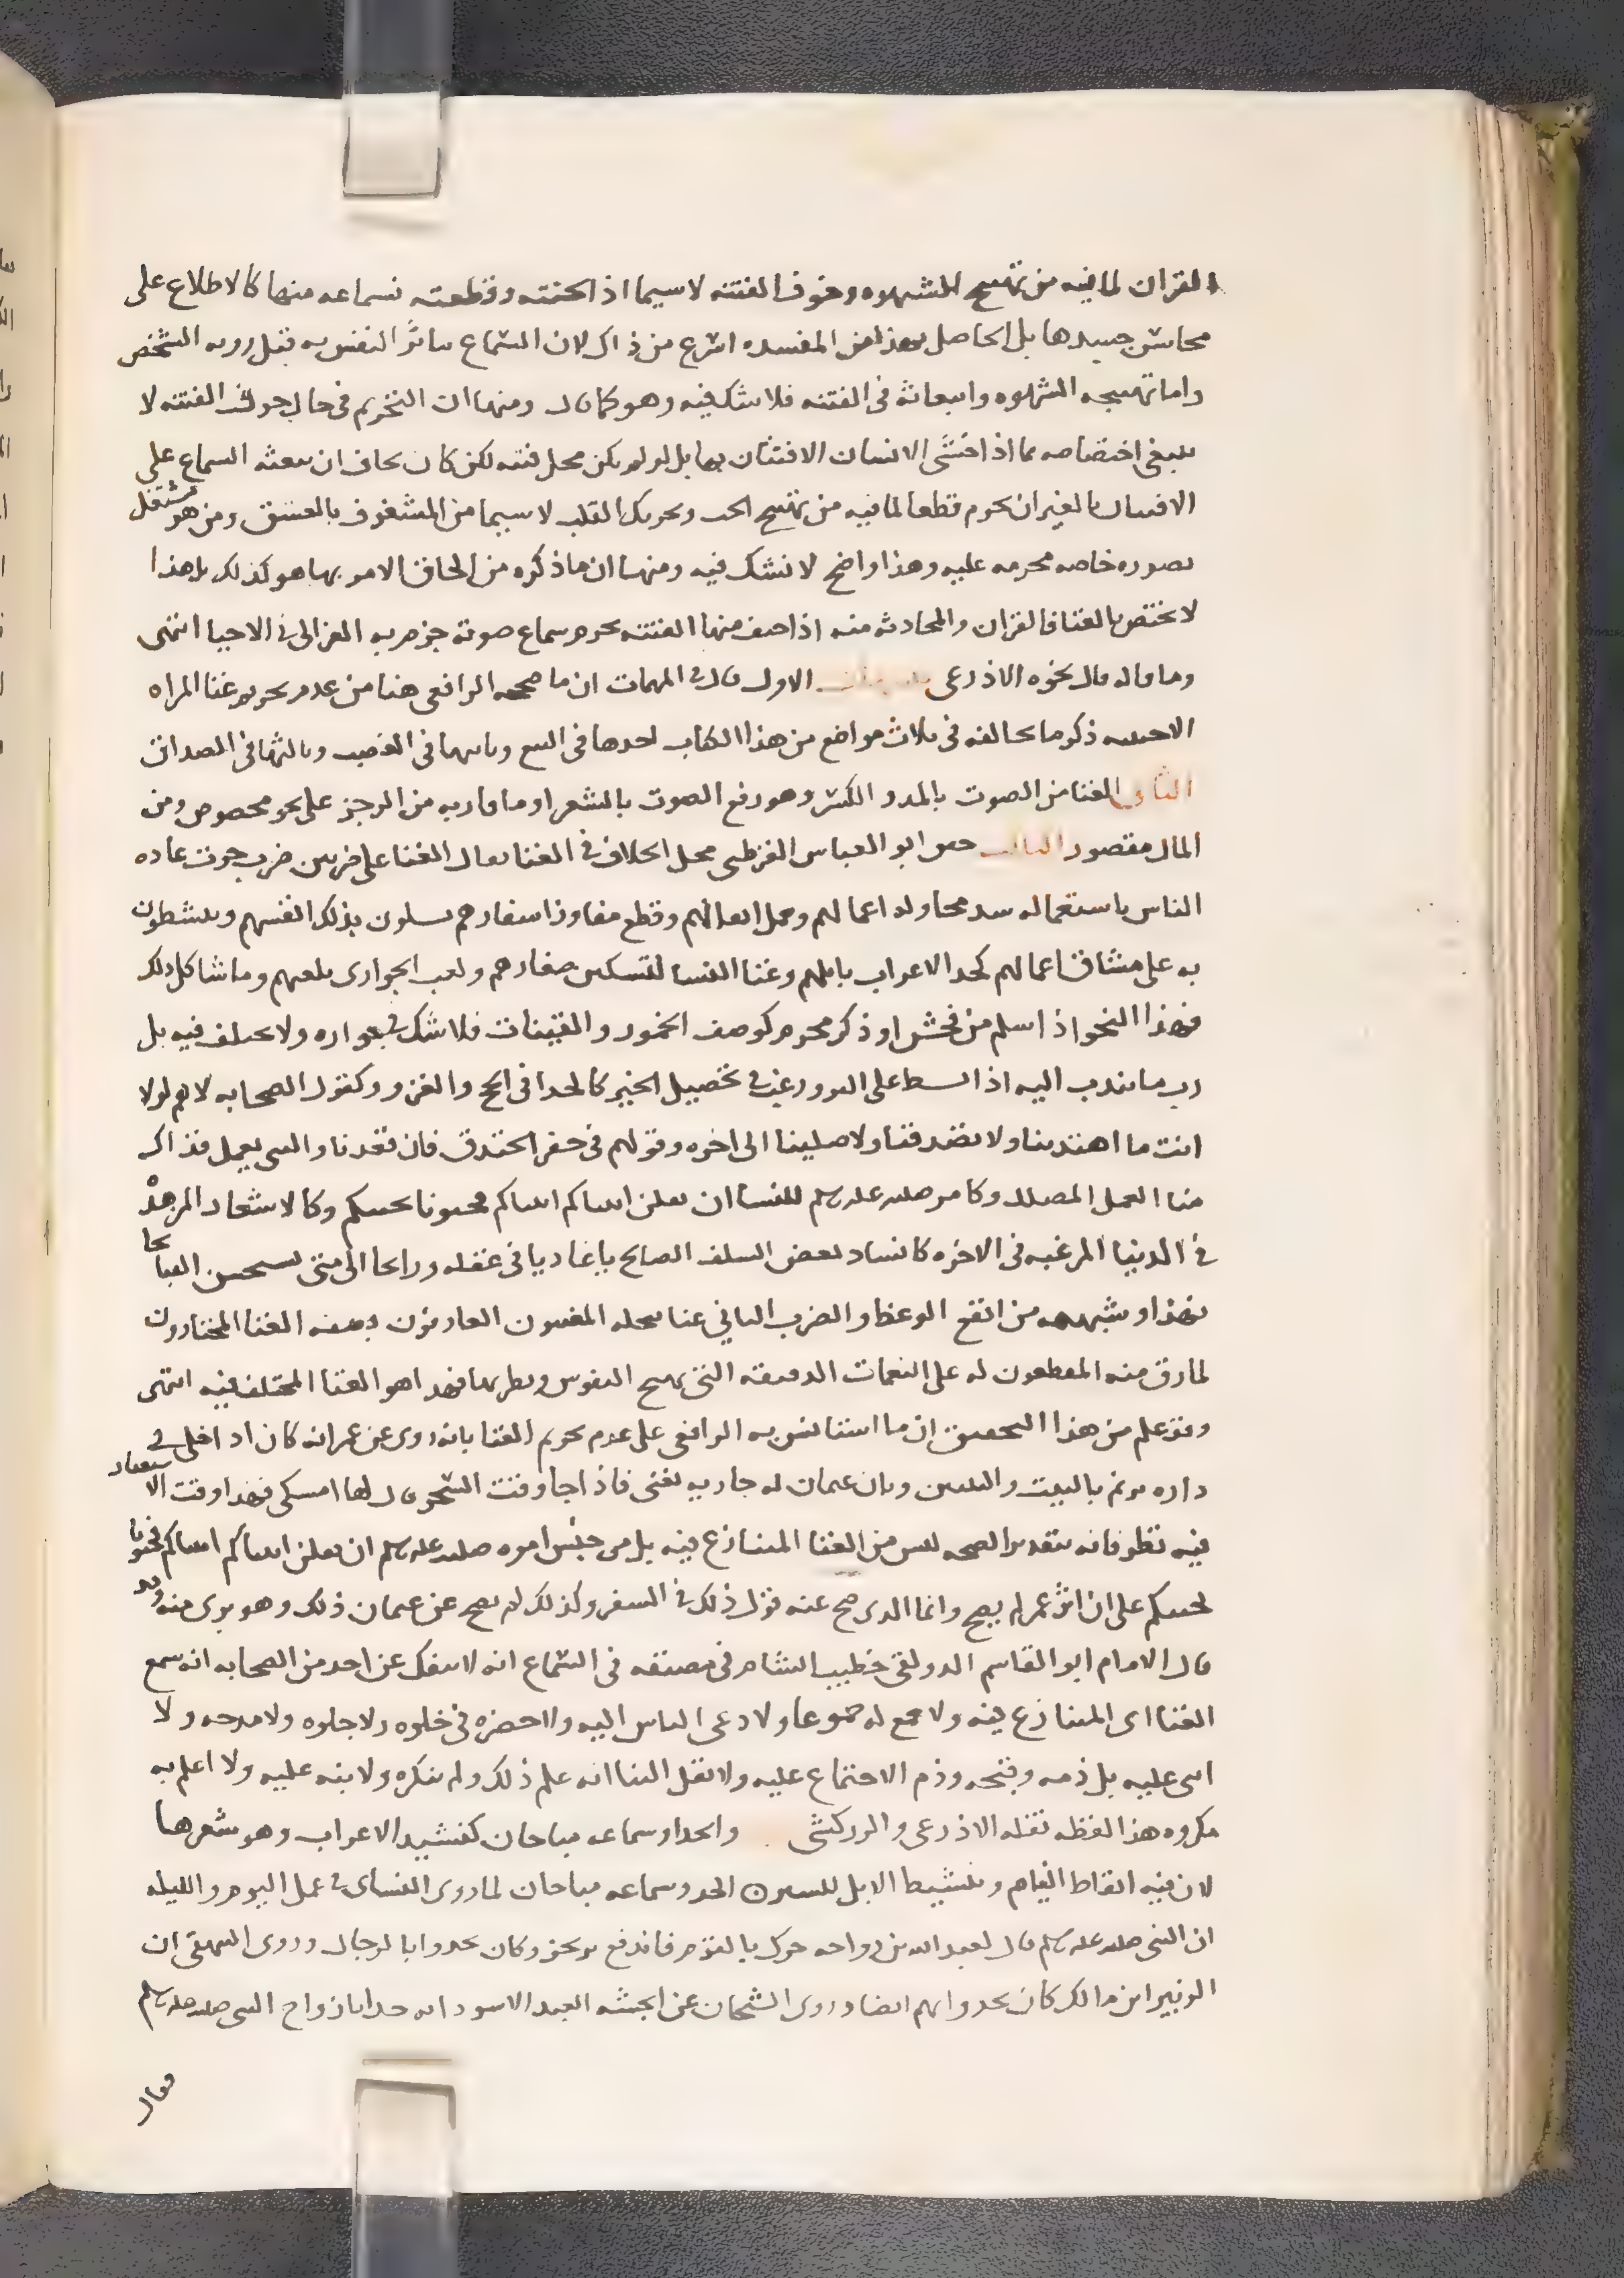 القران لما فيه من تهييج الشهوه وخوف الفتنه لا سيما اذا لحنته وقطعته فسماعه منها كالاطلاع على
محاسن جسدها بل الحاصل بهذا من المفسده اسرع من ذاك لان السماع يتاثر النفس به قبل رويه الشخص
واما تهييجه الشهوه وانبعاثه في الفتنه فلا شك فيه وهو كما قال ومنها ان التحريم في حال خوف الفتنه لا
ينبغي اختصاصه بما اذا اختشى الانسان الافتتان بها بل لو لم يكن محل فتنه لكن كان يخاف ان يبعثه السماع على
الافتتان بالغير ان يحرم قطعا لما فيه من تهييج الحب وتحريك القلب لا سيما من المشغوف بالعشق ومن هو مشتغل
بصوره خاصه محرمه عليه وهذا واضح لا نشك فيه ومنها ان ما ذكره من الحاق الامرد بها هو كذلك بل هذا
لا يختص بالغنا فالقران والمحادثه منه اذا خيف منها الفتنه يحرم سماع صوته جزم به الغزالي في الاحيا انتهى
وما قاله قال نحوه الاذرعي الاول قال في المهمات ان ما صححه الرافعي هنا من عدم تحريم غنا المراه
الاجنبيه ذكر ما يخالفه في ثلاث مواضع من هذا الكتاب احدها في البيع وثانيها في الغصب وثالثها في الصداق
الثاني الغنا من الصوت بالمد والكسر وهو رفع الصوت بالشعر او ما قاربه من الرجز على نحو مخصوص ومن
المال مقصور الثالث خص ابو العباس القرطبي محل الخلاف في الغنا فقال الغنا على ضربين ضرب جرت عاده
الناس باستعماله عند محاوله اعمالهم وحمل اثقالهم وقطع مفاوز اسفارهم يسلون بذلك انفسهم وينشطون
به على مشاق اعمالهم كحد الاعراب بابلهم وغنا النسا لتسكين صغارهم ولعب الجواري بلعبهم وما شاكل ذلك
فهذا النحو اذا سلم من فحش او ذكر محرم كوصف الخمور والقينات فلا شك في جوازه ولا يختلف فيه بل
ربما يندب اليه اذا نشط على البر ورغب في تحصيل الخير كالحدا في الحج والغزو وكقول الصحابه لاهم لولا
انت ما اهتدينا ولا تصدقنا ولا صلينا الى اخره وقولهم في حفر الخندق فان قعدنا والنبي يعمل فذاك
منا العمل المضلل وكامره صلى الله عليه وسلم للنسا ان يقلن اتيناكم اتيناكم فحيونا نحييكم وكالاشعار المزهده
في الدنيا المرغبه في الاخره كانشاد بعض السلف الصالح يا غاديا في غفله ورايحا الى متى تستحسن القبايحا
فهذا وشبهه من انفع الوعظ والضرب الثاني غنا ينتحله المغنيون العارفون بصنعه الغنا المختارون
لما رق منه المقطعون له على النغمات الدقيقه التي تهيج النفوس وتطربها فهذا هو الغنا المختلف فيه انتهى
وقد علم من هذا التحقيق ان ما استانس به الرافعي على عدم تحريم الغنا بانه روى عن عمر انه كان اذا خلى في
داره يترنم بالبيت والبيتين وبان عثمان له جاريه تغني فاذا جا وقت السحر قال لها امسكي فهذا وقت الاستغفار
فيه نظر فانه بتقدير الصحه ليس من الغنا المتنازع فيه بل من جنس امره صلى الله عليه وسلم ان يقلن اتيناكم اتيناكم فحيونا
نحييكم على ان اثر عمر لم يصح وانما الذي صح عنه قول ذلك في السفر وكذلك لم يصح عن عثمان ذلك وهو بري منه وقد
قال الامام ابو القاسم الدولعي خطيب الشام في مصنفه في السماع انه لا ينفك عن احد من الصحابه انه سمع
الغنا اي المتنازع فيه ولا جمع له جموعا ولا دعى الناس اليه ولا احضره في خلوه ولا جلوه ولا مدحه ولا
اثنى عليه بل ذمه وقبحه وذم الاجتماع عليه ولا نقل الينا انه علم ذلك ولم ينكره ولا بينه عليه ولا اعلم به
مكروه هذا لفظه نقله الاذرعي والزركشي والحدا وسماعه مباحان كنشيد الاعراب وهو شعرها
لان فيه ايقاظ النيام وتنشيط الابل للسير الحدو وسماعه مباحان لما روى النساي في عمل اليوم والليله
ان النبي صلى الله عليه وسلم قال لعبد الله بن رواحه حرك بالقوم فاندفع يرتجز وكان يحدوا بالرجال وروى البيهقي ان
البرا بن مالك كان يحدوا بهم ايضا وروى الشيخان عن انجشه العبد الاسود انه حدا بازواج النبي صلى الله عليه وسلم
فقال